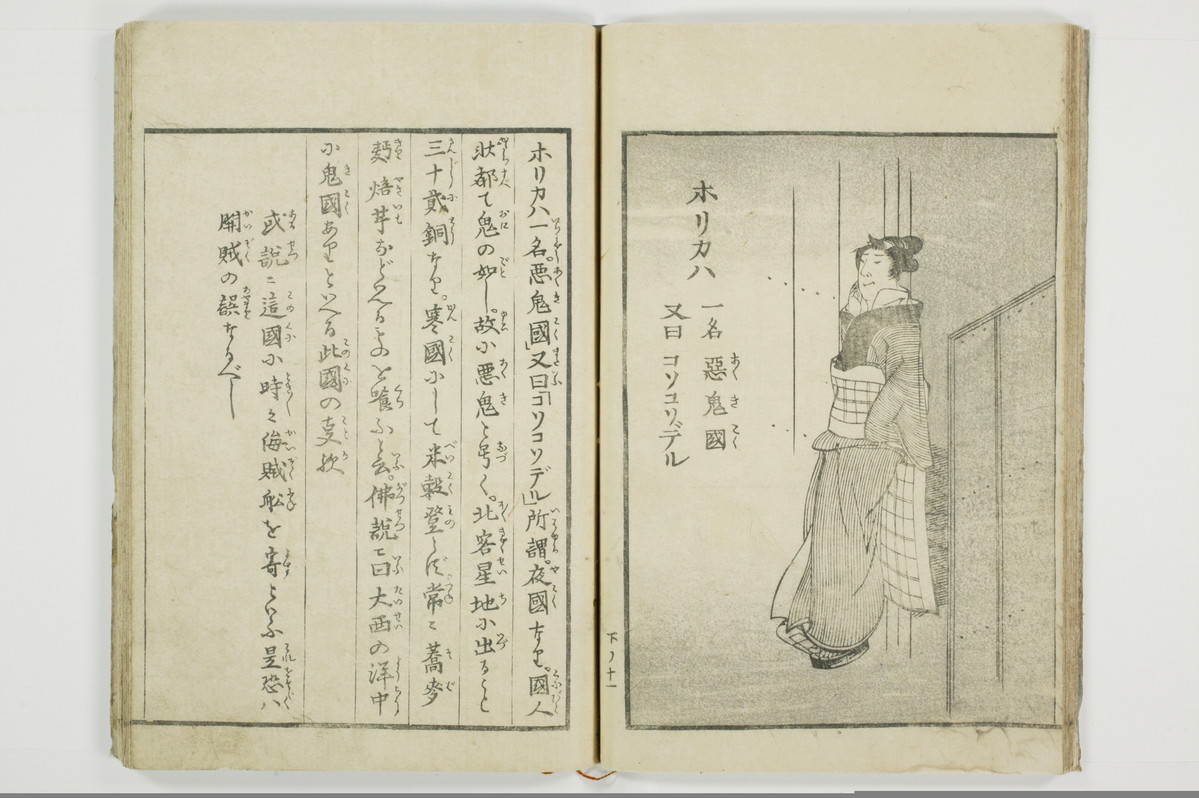 ホリカハ
一名 惡鬼國
又曰 コソコソデル
下ノ十一
ホリカハ一名。悪鬼國」又曰「コソコソデル」所謂。夜國なり。國人
状都て鬼の如し。故に悪鬼と号く。北客星地に出ること
三十貳銅なり。寒國にして米穀登らず常に蕎麥
麪焙芋などやうるものを喰ふと云。佛説に曰大西の洋中
に鬼國ありといへる此國の支歟
或説に這國に時々海賊舩を寄といふ是恐ハ
開賊の誤なるべし